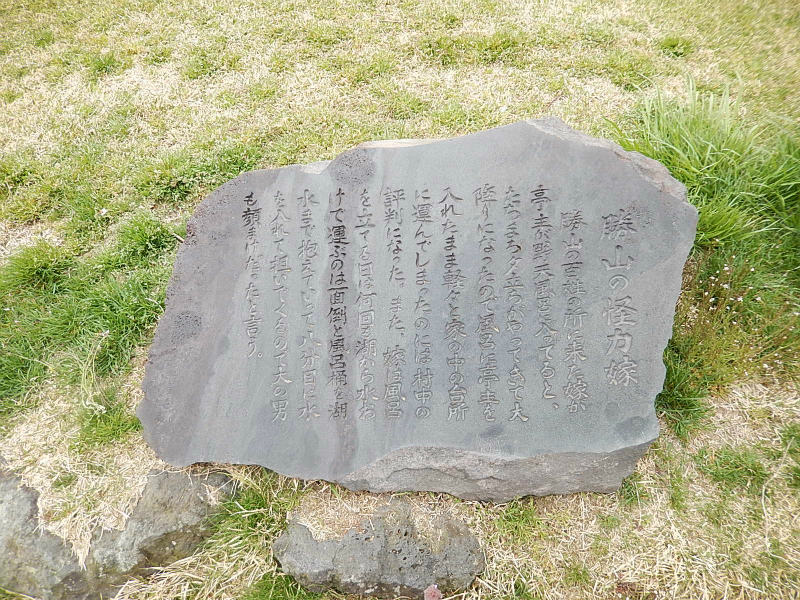 勝山の怪力嫁
勝山の百姓の所に来た嫁が
亭主が野天風呂に入ってると、
たちまち夕立ちがやってきて大
降りになったので風呂に亭主を
入れたまま軽々と家の中の台所
に運んでしまったのには村中の
評判になった。また、嫁は風呂
を立てる日は何回も湖から水お
けで運ぶのは面倒と風呂桶を湖
水まで抱えていって八分目に水
を入れて担いでくるので大の男
も顔まけだったと言う。